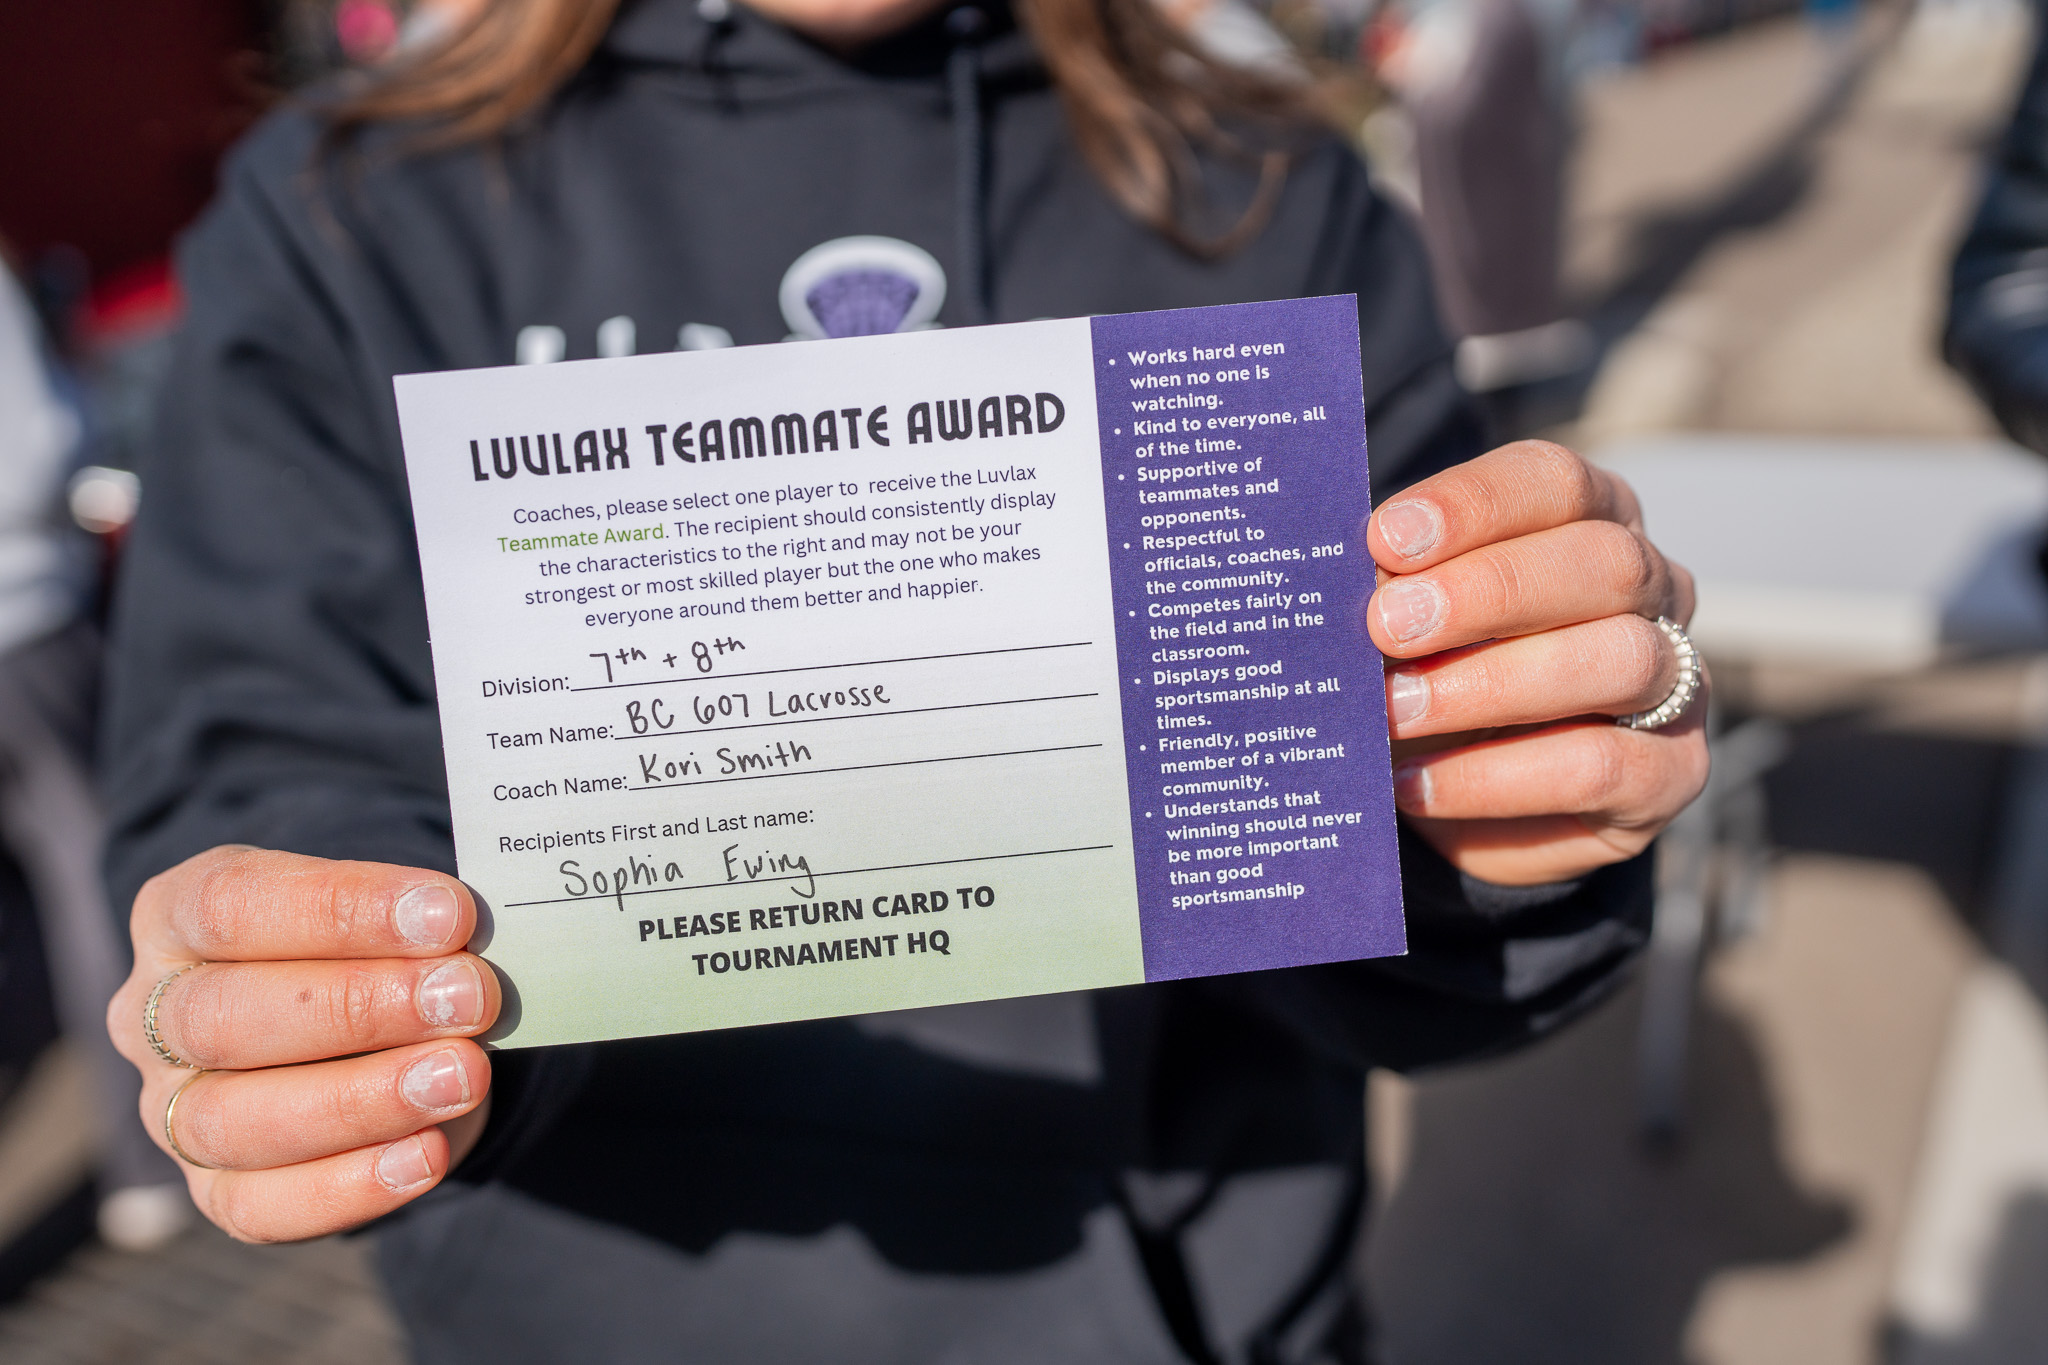 LUVLAX TEAMMATE AWARD
Coaches, please select one player to receive the Luvlax
Teammate Award. The recipient should consistently display
the characteristics to the right and may not be your
strongest or most skilled player but the one who makes
everyone around them better and happier.
Division: 7th + 8th
Team Name: BC 607 Lacrosse
Coach Name: Kori Smith
Recipients First and Last name:
Sophia Ewing
PLEASE RETURN CARD TO
TOURNAMENT HQ
• Works hard even
when no one is
watching.
• Kind to everyone, all
of the time.
• Supportive of
teammates and
opponents.
• Respectful to
officials, coaches, and
the community.
• Competes fairly on
the field and in the
classroom.
• Displays good
sportsmanship at all
times.
• Friendly, positive
member of a vibrant
community.
• Understands that
winning should never
be more important
than good
sportsmanship